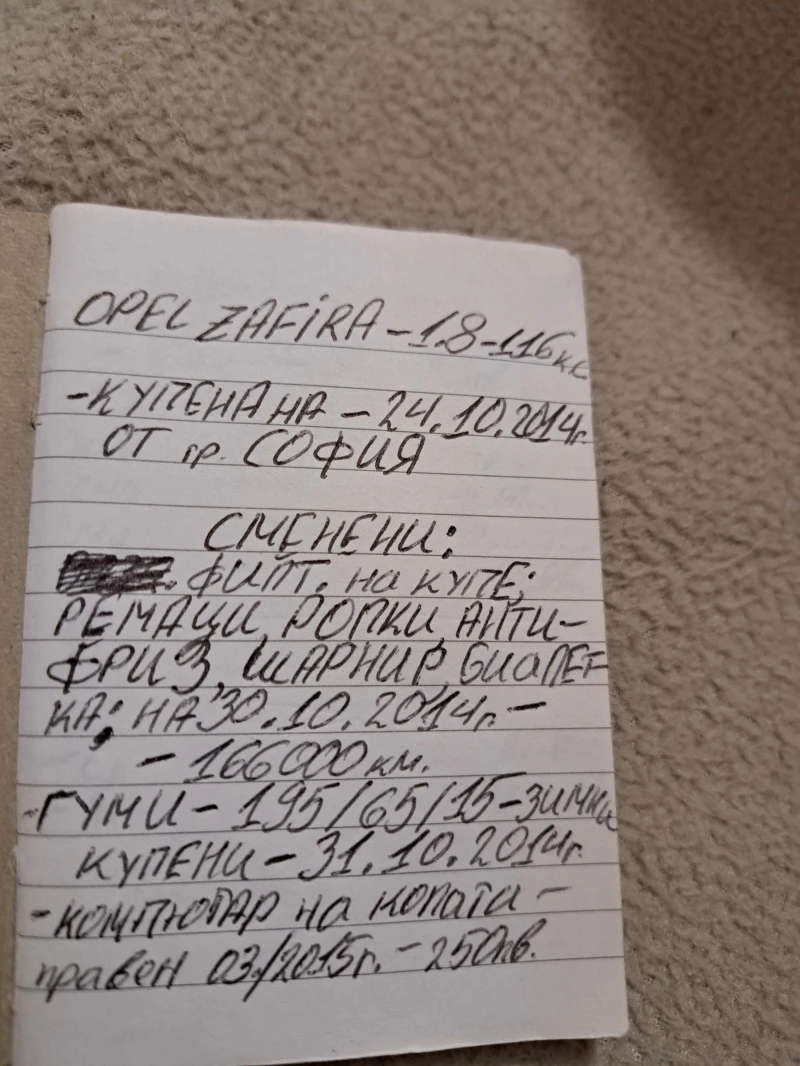 OPEL ZAFiRA - 1.8 - 116 к.с
- КУПЕНА НА - 24.10.2014г.
ОТ гр. СОФИЯ
СМЕНЕНИ:
ФИЛТ. на КУПЕ;
РЕМАЦИ, РОЛКИ, АНТИ-
ФРИЗ, ШАРНИР, БИАЛЕТ-
КА; НА 30.10.2014г. -
- 166000 км.
- ГУМИ - 195/65/15 - ЗИМНИ
КУПЕНИ - 31.10.2014г.
- КОМПЮТАР на колата -
правен 03./2015г. - 250лв.